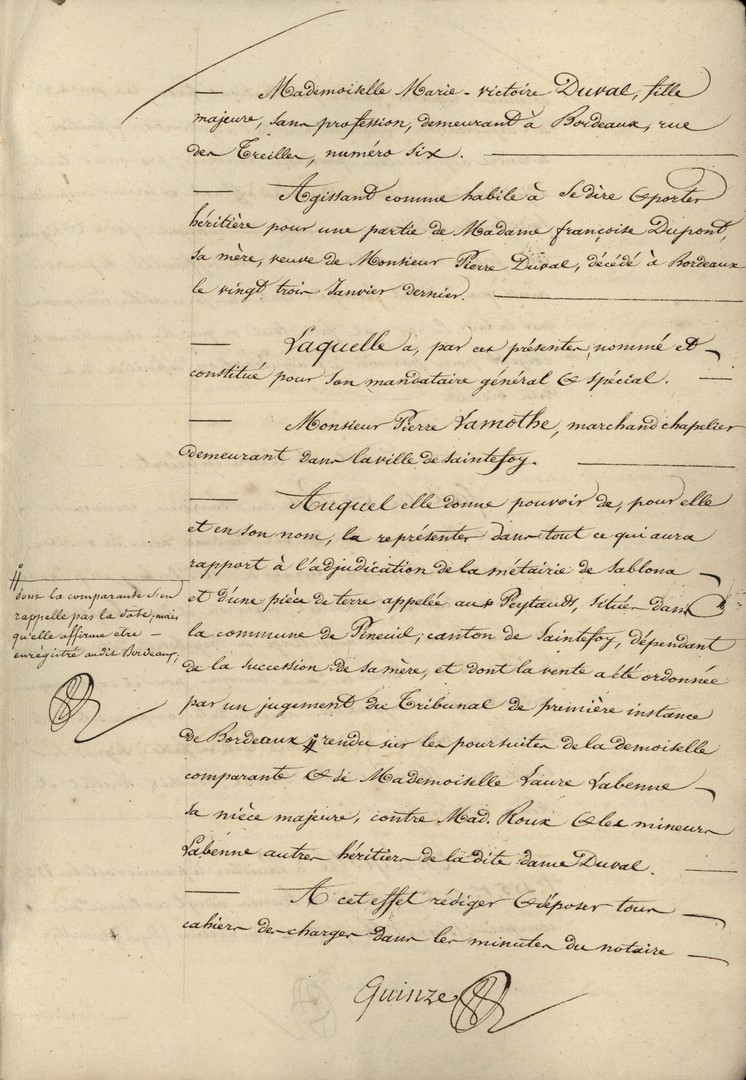 — Mademoiselle Marie-Victoire Duval, fille
majeure, sans profession, demeurant à Bordeaux, rue
des Treilles, numéro six. —
— Agissant comme habile à se dire & porter
héritière pour une partie de Madame françoise Dupont,
sa mère, veuve de Monsieur Pierre Duval, décédé à Bordeaux
le vingt trois Janvier dernier. —
— Laquelle a, par ces présentes, nommé et —
constitué pour son mandataire général & spécial. —
— Monsieur Pierre Lamothe, marchand chapelier
demeurant dans la ville de Saintefoy. —
— Auquel elle donne pouvoir de, pour elle
et en son nom, la représenter dans tout ce qui aura
rapport à l'adjudication de la métairie de Sablona
et d'une pièce de terre appelée aux Peytauds, situés dans
la commune de Pineuil, canton de Saintefoy, dépendant
de la succession de sa mère, et dont la vente a été ordonnée
par un jugement du Tribunal de première instance
de Bordeaux # rendu sur les poursuites de la demoiselle
comparante & de Mademoiselle Laure Labenne —
sa nièce majeure, contre Mad. Roux & les mineurs
Labenne autres héritiers de la dite dame Duval. —
— A cet effet rédiger & déposer tous —
cahiers des charges dans les minutes du notaire —
Quinze
#
dont la comparante s'en
rappelle pas la date, mais
qu'elle affirme être —
enregistré audit Bordeaux,